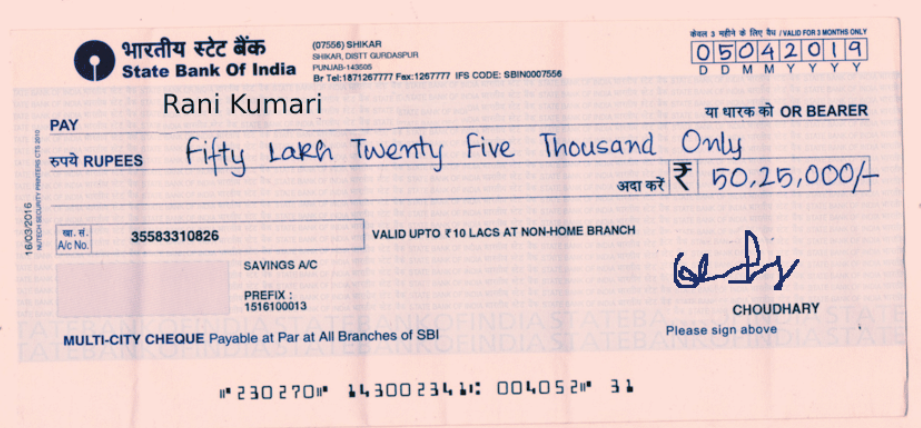 भारतीय स्टेट बैंक
State Bank Of India
(07556) SHIKAR
SHIKAR, DISTT GURDASPUR
PUNJAB-143505
Br Tel:1871267777 Fax:1267777 IFS CODE: SBIN0007556
केवल 3 महीने के लिए वैध / VALID FOR 3 MONTHS ONLY
05042019
D D M M Y Y Y Y
Rani Kumari
PAY
या धारक को OR BEARER
रुपये RUPEES Fifty Lakh Twenty Five Thousand Only
अदा करें ₹ 50,25,000/-
16/03/2016
NUTECH SECURITY PRINTERS CTS 2010
खा. सं.
A/c No.
35583310826
VALID UPTO ₹ 10 LACS AT NON-HOME BRANCH
SAVINGS A/C
PREFIX :
1516100013
CHOUDHARY
Please sign above
MULTI-CITY CHEQUE Payable at Par at All Branches of SBI
⑈230270⑈ 143002341⑆ 004052⑈ 31